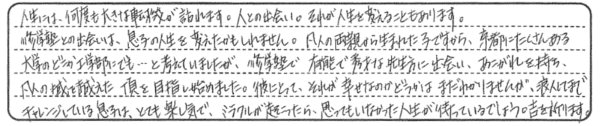 人生には、何度も大きな転機が訪れます。人との出会い。それが人生を変えることもあります。
修学塾との出会いは、息子の人生を変えたかもしれません。凡人の両親から生まれた子ですから、京都にたくさんある
大学のどこか工学部にでも…と考えていましたが、修学塾で有能で秀才な先生方に出会い、あこがれを持ち、
凡人の域を越えた頂を目指し始めました。彼にとって、それが幸せなのかどうかはまだわかりませんが、浪人してまで
チャレンジしている息子は、とても楽し気で、ミラクルが起こったら、思ってもいなかった人生が待っているでしょう。吉を祈ります。